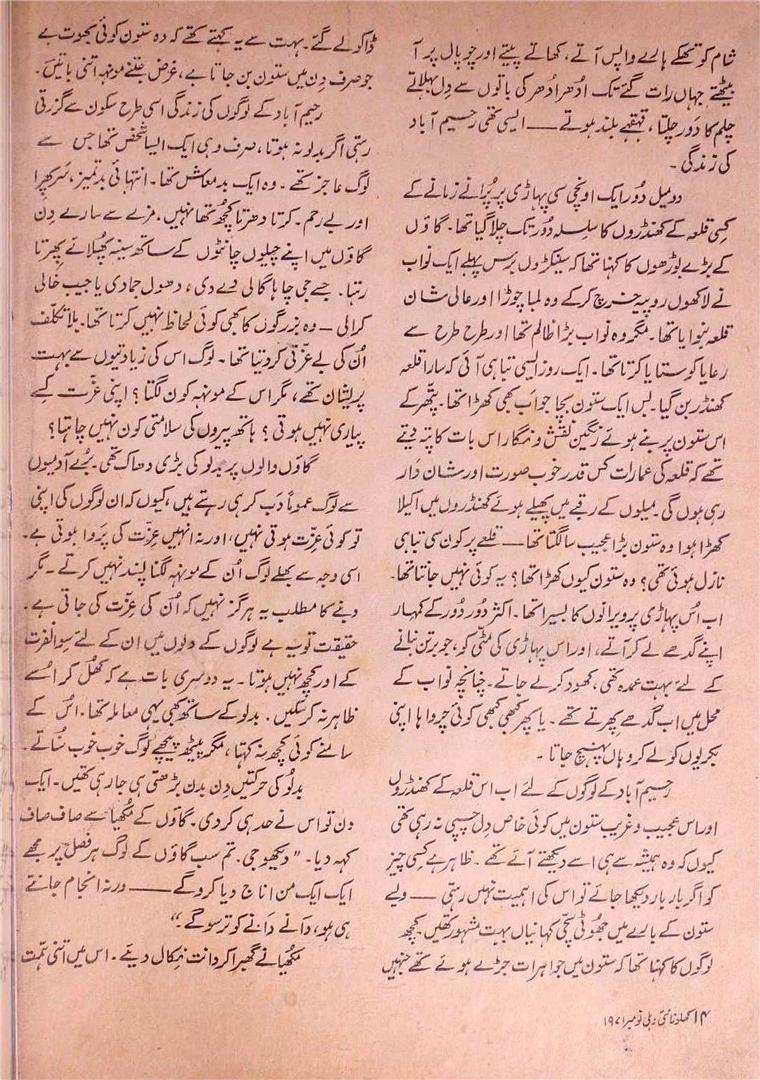 شام کو تھکے ہارے واپس آتے، کھاتے پیتے اور چوپال پر آ
بیٹھتے جہاں رات گئے تک ادھر ادھر کی باتوں سے دل بہلاتے
چلم کا دَور چلتا، قہقہے بلند ہوتے —— ایسی تھی رحیم آباد
کی زندگی۔
دو میل دور ایک اونچی سی پہاڑی پر پُرانے زمانے کے
کسی قلعہ کے کھنڈروں کا سلسلہ دُور تک چلا گیا تھا۔ گاؤں
کے بڑے بوڑھوں کا کہنا تھا کہ سینکڑوں برس پہلے ایک نواب
نے لاکھوں روپیہ خرچ کرکے وہ لمبا چوڑا اور عالی شان
قلعہ بنوایا تھا۔ مگر وہ نواب بڑا ظالم تھا اور طرح طرح سے
رعایا کو ستایا کرتا تھا۔ ایک روز ایسی تباہی آئی کہ سارا قلعہ
کھنڈر بن گیا۔ بس ایک ستون بچا جو اَب بھی کھڑا تھا۔ پتّھر کے
اس ستون پر بنے ہوئے رنگین نقش و نگار اس بات کا پتہ دیتے
تھے کہ قلعہ کی عمارات کس قدر خوب صورت اور شان دار
رہی ہوں گی۔ میلوں کے رقبے میں پھیلے ہوئے کھنڈروں میں اکیلا
کھڑا ہوا وہ ستون بڑا عجیب سا لگتا تھا —— قلعے پر کون سی تباہی
نازل ہوئی تھی؟ وہ ستون کیوں کھڑا تھا؟ یہ کوئی نہیں جانتا تھا۔
اب اُس پہاڑی پر ویرانوں کا بسیرا تھا۔ اکثر دُور دُور کے کمہار
اپنے گدھے لے کر آتے، اور اس پہاڑی کی مٹّی کو، جو برتن بنانے
کے لئے بہت عمدہ تھی، کھود کر لے جاتے۔ چنانچہ نواب کے
محل میں اب گدھے پھرتے تھے۔ یا پھر کبھی کبھی کوئی چرواہا اپنی
بکریوں کو لے کر وہاں پہنچ جاتا۔
رحیم آباد کے لوگوں کے لئے اب اس قلعہ کے کھنڈروں
اور اس عجیب و غریب ستون میں کوئی خاص دل چسپی نہ رہی تھی
کیوں کہ وہ ہمیشہ سے ہی اسے دیکھتے آئے تھے۔ ظاہر ہے کسی چیز
کو اگر بار بار دیکھا جائے تو اس کی اہمیت نہیں رہتی —— ویسے
ستون کے بارے میں جھوٹی سچّی کہانیاں بہت مشہور تھیں۔ کچھ
لوگوں کا کہنا تھا کہ ستون میں جواہرات جڑے ہوئے تھے جنہیں
ڈاکو لے گئے۔ بہت سے یہ کہتے تھے کہ وہ ستون کوئی بھوت ہے
جو صرف دن میں ستون بن جاتا ہے، غرض جتنے مونہہ اتنی باتیں۔
رحیم آباد کے لوگوں کی زندگی اسی طرح سکون سے گزرتی
رہتی اگر بدلو نہ ہوتا، صرف وہی ایک ایسا شخص تھا جس سے
لوگ عاجز تھے۔ وہ ایک بدمعاش تھا۔ انتہائی بدتمیز، سَر پھرا
اور بے رحم۔ کرتا دھرتا کُچھ تھا نہیں، مزے سے سارے دن
گاؤں میں اپنے چیلوں چانٹوں کے ساتھ سینہ پُھلائے پھرتا
رہتا۔ جسے جی چاہا گالی دے دی، دھول جمادی یا جیب خالی
کرالی — وہ بزرگوں کا بھی کوئی لحاظ نہیں کرتا تھا۔ بلا تکلّف
اُن کی بے عزّتی کر دیتا تھا۔ لوگ اس کی زیادتیوں سے بہت
پریشان تھے، مگر اس کے مونہہ کون لگتا؟ اپنی عزّت کسے
پیاری نہیں ہوتی؟ ہاتھ پیروں کی سلامتی کون نہیں چاہتا؟
گاؤں والوں پر بدلو کی بڑی دھاک تھی۔ بُرے آدمیوں
سے لوگ عموماً دَب کر ہی رہتے ہیں، کیوں کہ ان لوگوں کی اپنی
تو کوئی عزّت ہوتی نہیں، اور نہ انہیں عزّت کی پَروا ہوتی ہے۔
اسی وجہ سے بھلے لوگ اُن کے مونہہ لگنا پسند نہیں کرتے۔ مگر
دبنے کا مطلب یہ ہرگز نہیں کہ اُن کی عزّت کی جاتی ہے۔
حقیقت تو یہ ہے لوگوں کے دلوں میں ان کے لئے سوا نفرت
کے اور کچھ نہیں ہوتا۔ یہ دوسری بات ہے کہ کُھل کر اُسے
ظاہر نہ کر سکیں۔ بدلو کے ساتھ بھی یہی معاملہ تھا۔ اُس کے
سامنے کوئی کچھ نہ کہتا، مگر پیٹھ پیچھے لوگ خوب خوب سُناتے۔
بدلُو کی حرکتیں دن بدن بڑھتی ہی جا رہی تھیں۔ ایک
دن تو اس نے حد ہی کر دی۔ گاؤں کے مُکھیا سے صاف صاف
کہہ دیا۔ "دیکھو جی۔ تم سب گاؤں کے لوگ ہر فصل پر مجھے
ایک ایک من اناج دیا کرو گے —— ورنہ انجام جانتے
ہی ہو، دانے دانے کو ترسو گے۔"
مکھیا نے گھبرا کر دانت نکال دیئے۔ اس میں اتنی ہمّت
۱۴ کھلونا نئی دہلی نومبر ۱۹۷۱